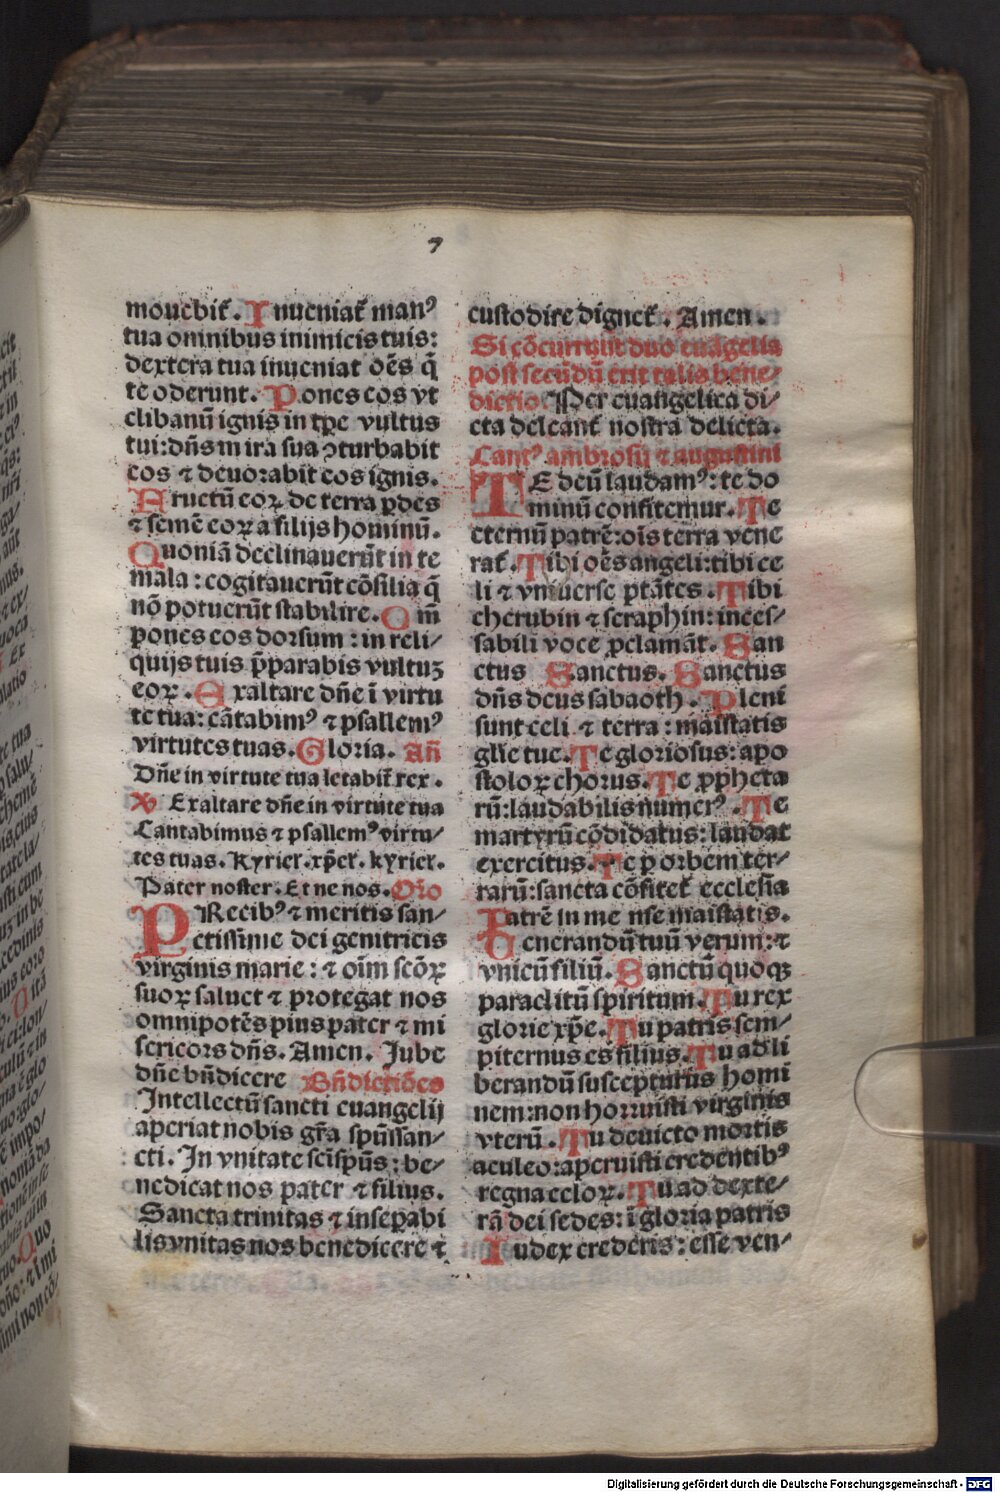 7
mouebit̃. Inueniat̃ manꝰ
tua omnibus inimicis tuis:
dextera tua inueniat oẽs q̃
te oderunt. Pones eos vt
clibanũ ignis in tp̃e vultus
tui: dñs in ira sua ꝯturbabit
eos ⁊ deuorabit eos ignis.
Fructũ eoꝝ de terra ꝑdes
⁊ semẽ eoꝝ a filijs hominũ.
Quoniã declinauerũt in te
mala: cogitauerũt cõsilia q̃
nõ potuerũt stabilire. Qm̃
pones eos dorsum: in reli/
quijs tuis p̃parabis vultuʒ
eoꝝ. Exaltare dñe ĩ virtu
te tua: cãtabimꝰ ⁊ psallemꝰ
virtutes tuas. Gloria. Añ
Dñe in virtute tua letabit̃ rex.
Exaltare dñe in virtute tua
Cantabimus ⁊ psallemꝰ virtu/
tes tuas. Kyriel. xp̃el. kyriel.
Pater noster. Et ne nos. Orõ
PRecibꝰ ⁊ meritis san/
ctissime dei genitricis
virginis marie: ⁊ oĩm scõꝝ
suoꝝ saluet ⁊ protegat nos
omnipotẽs pius pater ⁊ mi
sericors dñs. Amen. Jube
dñe bñdicere Bñdictiões
Intellectũ sancti euangelij
aperiat nobis gr̃a spũssan/
cti. In vnitate sc̃i spũs: be/
nedicat nos pater ⁊ filius.
Sancta trinitas ⁊ inseꝑabi
lis vnitas nos benedicere ⁊
custodire dignet̃. Amen.
Si cõcurrunt duo euãgelia
post secũdũ erit talis bene/
dictio. Per euangelica di/
cta deleant̃ nostra delicta.
Cantꝰ ambrosij ⁊ augustini
TE deũ laudamꝰ: te do
minũ confitemur. Te
eternũ patrẽ: oĩs terra vene
rat̃. Tibi oẽs angeli: tibi ce
li ⁊ vniuerse ptãtes. Tibi
cherubin ⁊ seraphin: inces/
sabili voce ꝓclamãt. San
ctus Sanctus. Sanctus
dñs deus sabaoth. Pleni
sunt celi ⁊ terra: maiestatis
gl̃ie tue. Te gloriosus: apo
stoloꝝ chorus. Te ꝓpheta
rũ: laudabilis numerꝰ. Te
martyrũ cõdidatus: laudat
exercitus. Te ꝑ orbem ter/
rarũ: sancta cõfitet̃ ecclesia
Patrẽ inmense maiestatis.
Uenerandũ tuũ verum: ⁊
vnicũ filiũ. Sanctũ quoqꝫ
paraclitũ spiritum. Tu rex
glorie xp̃e. Tu patris sem/
piternus es filius. Tu ad li
berandũ suscepturus homi
nem: non horruisti virginis
vterũ. Tu deuicto mortis
aculeo: aperuisti credentibꝰ
regna celoꝝ. Tu ad dexte/
rã dei sedes: ĩ gloria patris
Iudex crederis: esse ven/
Digitalisierung gefördert durch die Deutsche Forschungsgemeinschaft - DFG